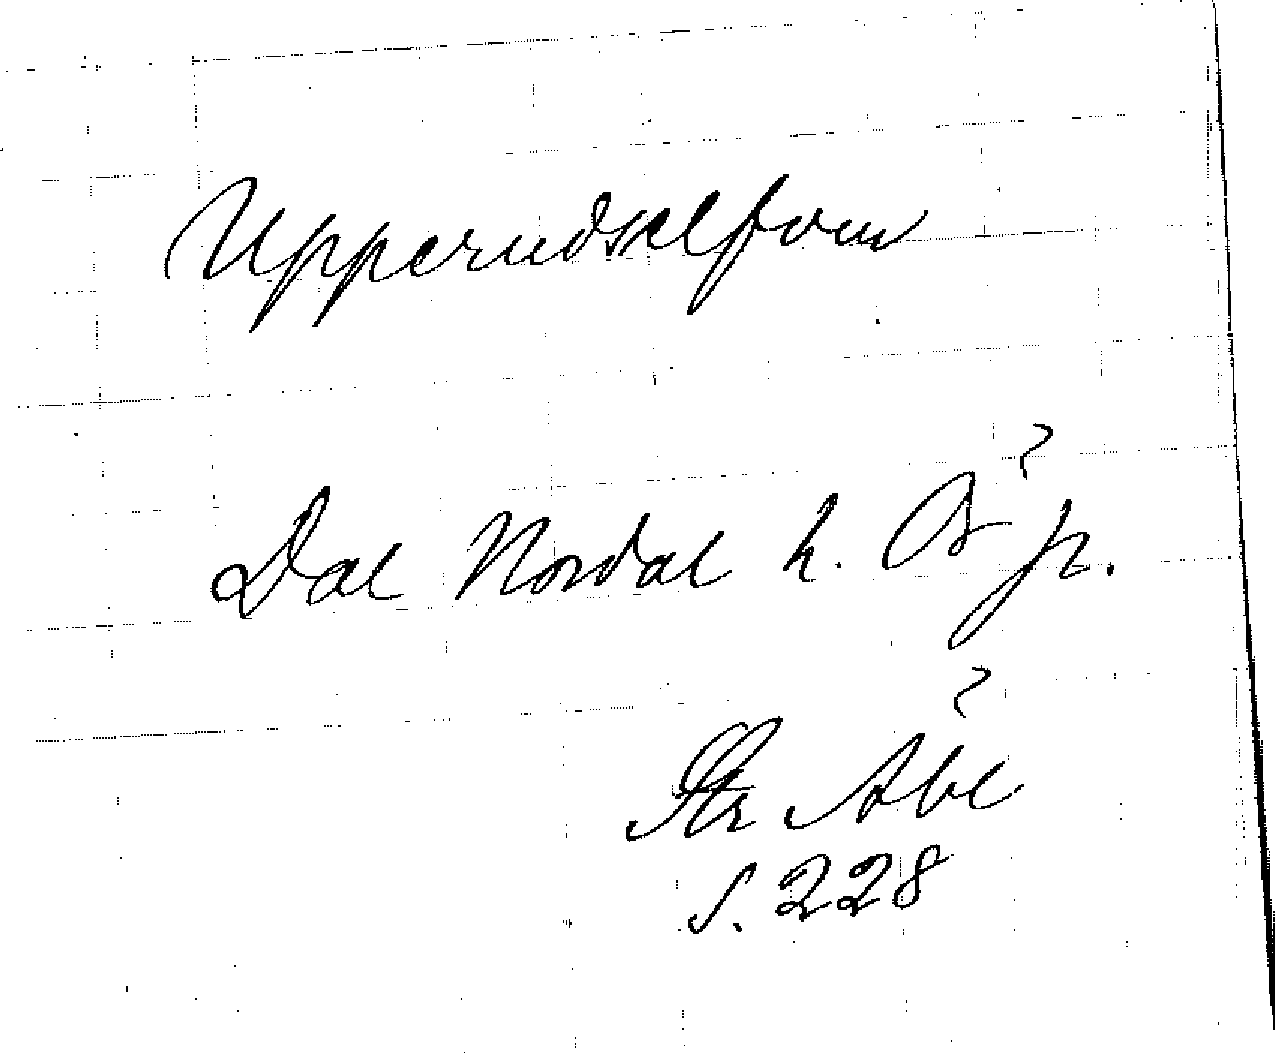 Upperudselfven
Dal Nordal h. Ör? sn.
Str Abl?
s. 228